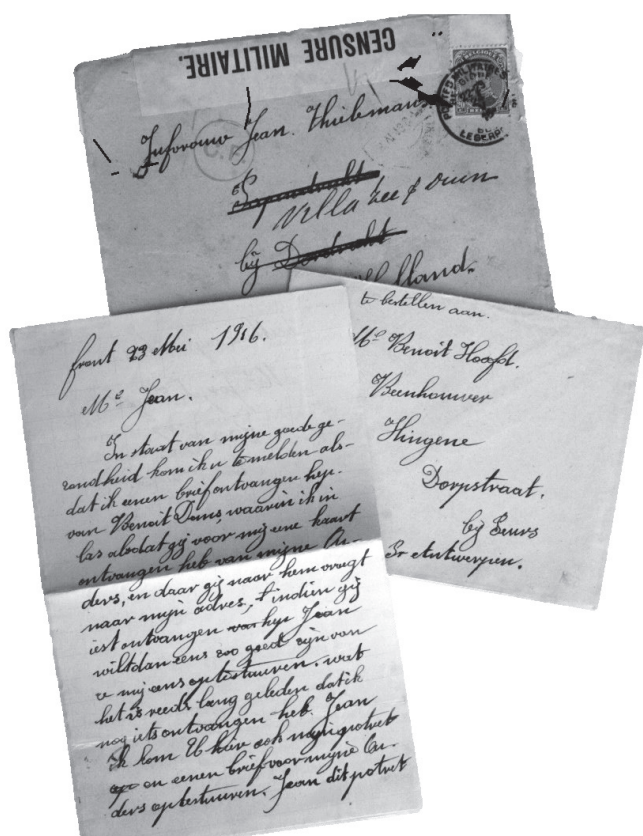 CENSURE MILITAIRE.
Juforouw Jean Thielemans
Villa Zee & Duin
bij Dordrecht
Holland.
te bestellen aan.
Mr Benoit Hoofd.
Beenhouwer
Hingene
Dorpstraat.
bij Puurs
Pr Antwerpen.
front 23 Mei 1916.
Me Jean.
In staat van mijne goede ge-
zondheid kom ik u te melden als-
dat ik eenen brief ontvangen hep.
van Benoit Dons, waarin ik in
las alsdat gij voor mij eene kaart
ontvangen heb van mijne Ou-
ders, en daar gij naar hem vraagt
naar mijn adres, t'indien gij
iest ontvangen hep Jean
wilt dan eens zoo goed zijn van
e mij eens op te stuuren. wat
het is reeds lang geleden dat ik
nog iets ontvangen heb. Jean
Ik kom U hier ook mijn potret
en eenen brief voor mijne Ou-
ders op te stuuren. Jean dit potret